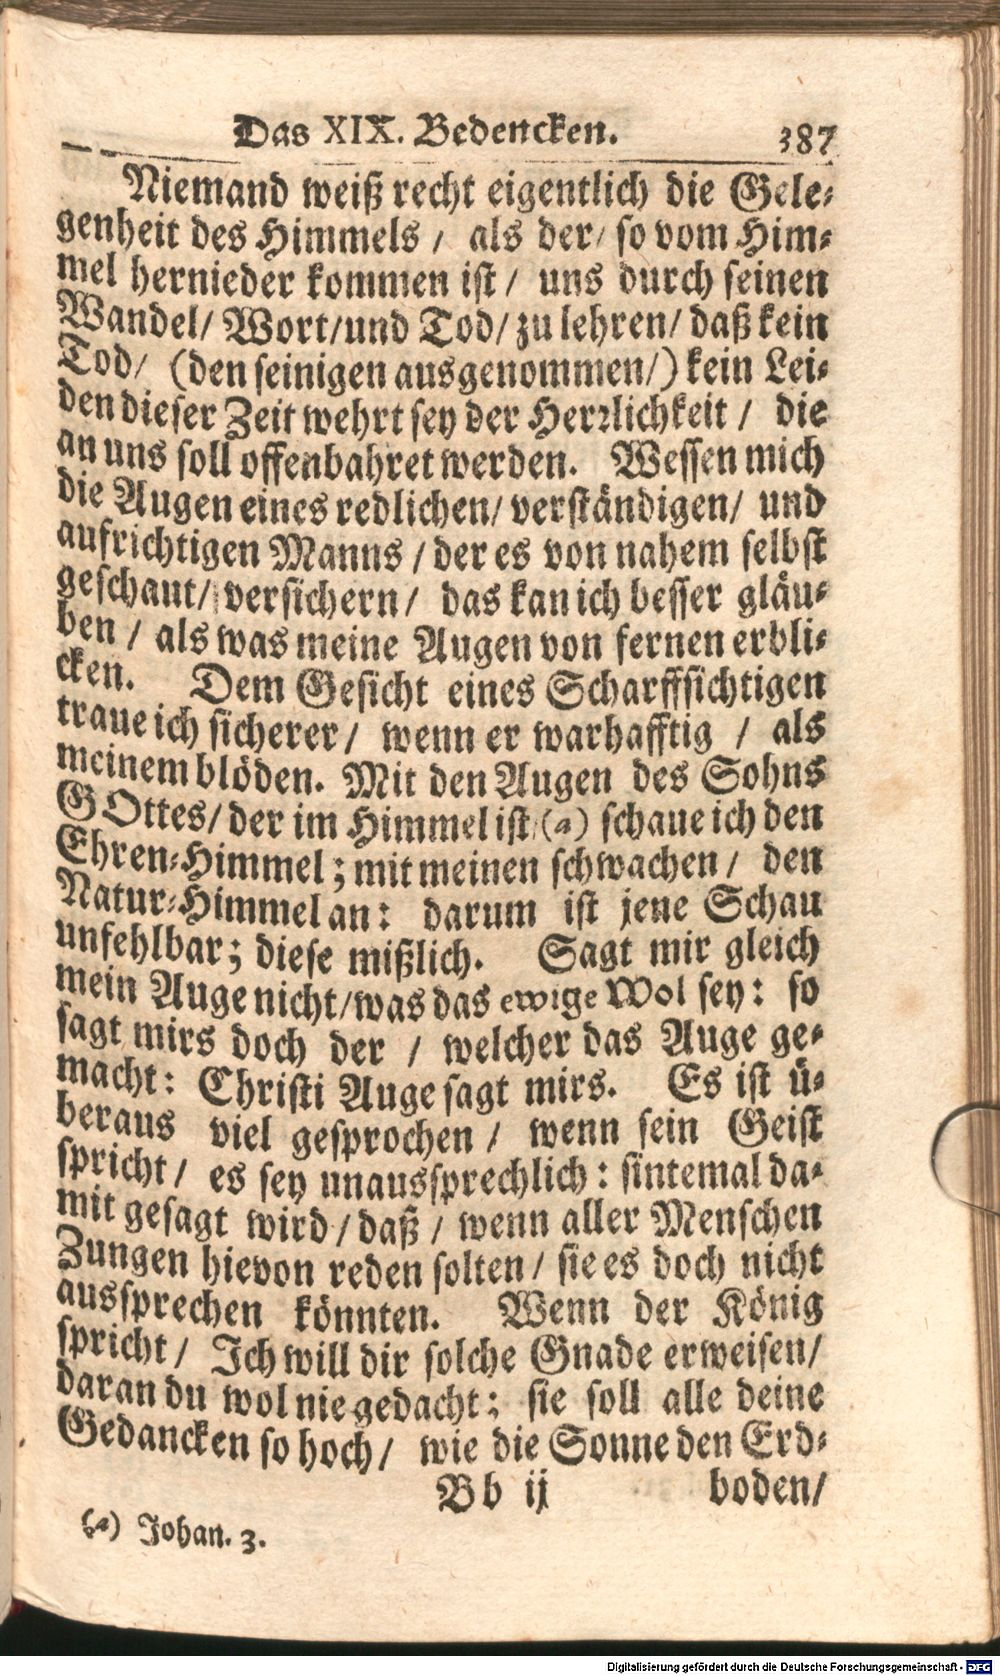 Das XIX. Bedencken. 387
Niemand weiß recht eigentlich die Gele-
genheit des Himmels / als der / so vom Him-
mel hernieder kommen ist / uns durch seinen
Wandel / Wort / und Tod / zu lehren / daß kein
Tod / (den seinigen ausgenommen /) kein Lei-
den dieser Zeit wehrt sey der Herrlichkeit / die
an uns soll offenbahret werden. Wessen mich
die Augen eines redlichen / verständigen / und
aufrichtigen Manns / der es von nahem selbst
geschaut / versichern / das kan ich besser gläu-
ben / als was meine Augen von fernen erbli-
cken. Dem Gesicht eines Scharffsichtigen
traue ich sicherer / wenn er warhafftig / als
meinem blöden. Mit den Augen des Sohns
GOttes / der im Himmel ist / (a) schaue ich den
Ehren-Himmel; mit meinen schwachen / den
Natur-Himmel an: darum ist jene Schau
unfehlbar; diese mißlich. Sagt mir gleich
mein Auge nicht / was das ewige Wol sey: so
sagt mirs doch der / welcher das Auge ge-
macht: Christi Auge sagt mirs. Es ist ü-
beraus viel gesprochen / wenn sein Geist
spricht / es sey unaussprechlich: sintemal da-
mit gesagt wird / daß / wenn aller Menschen
Zungen hievon reden solten / sie es doch nicht
aussprechen könnten. Wenn der König
spricht / Ich will dir solche Gnade erweisen /
daran du wol nie gedacht; sie soll alle deine
Gedancken so hoch / wie die Sonne den Erd-
Bb ij boden /
(a) Johan. 3.
Digitalisierung gefördert durch die Deutsche Forschungsgemeinschaft - DFG